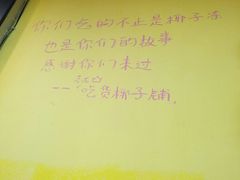 你们吃的不止是椰子冻
也是你们的故事
感谢你们来过
——吃货椰子铺.